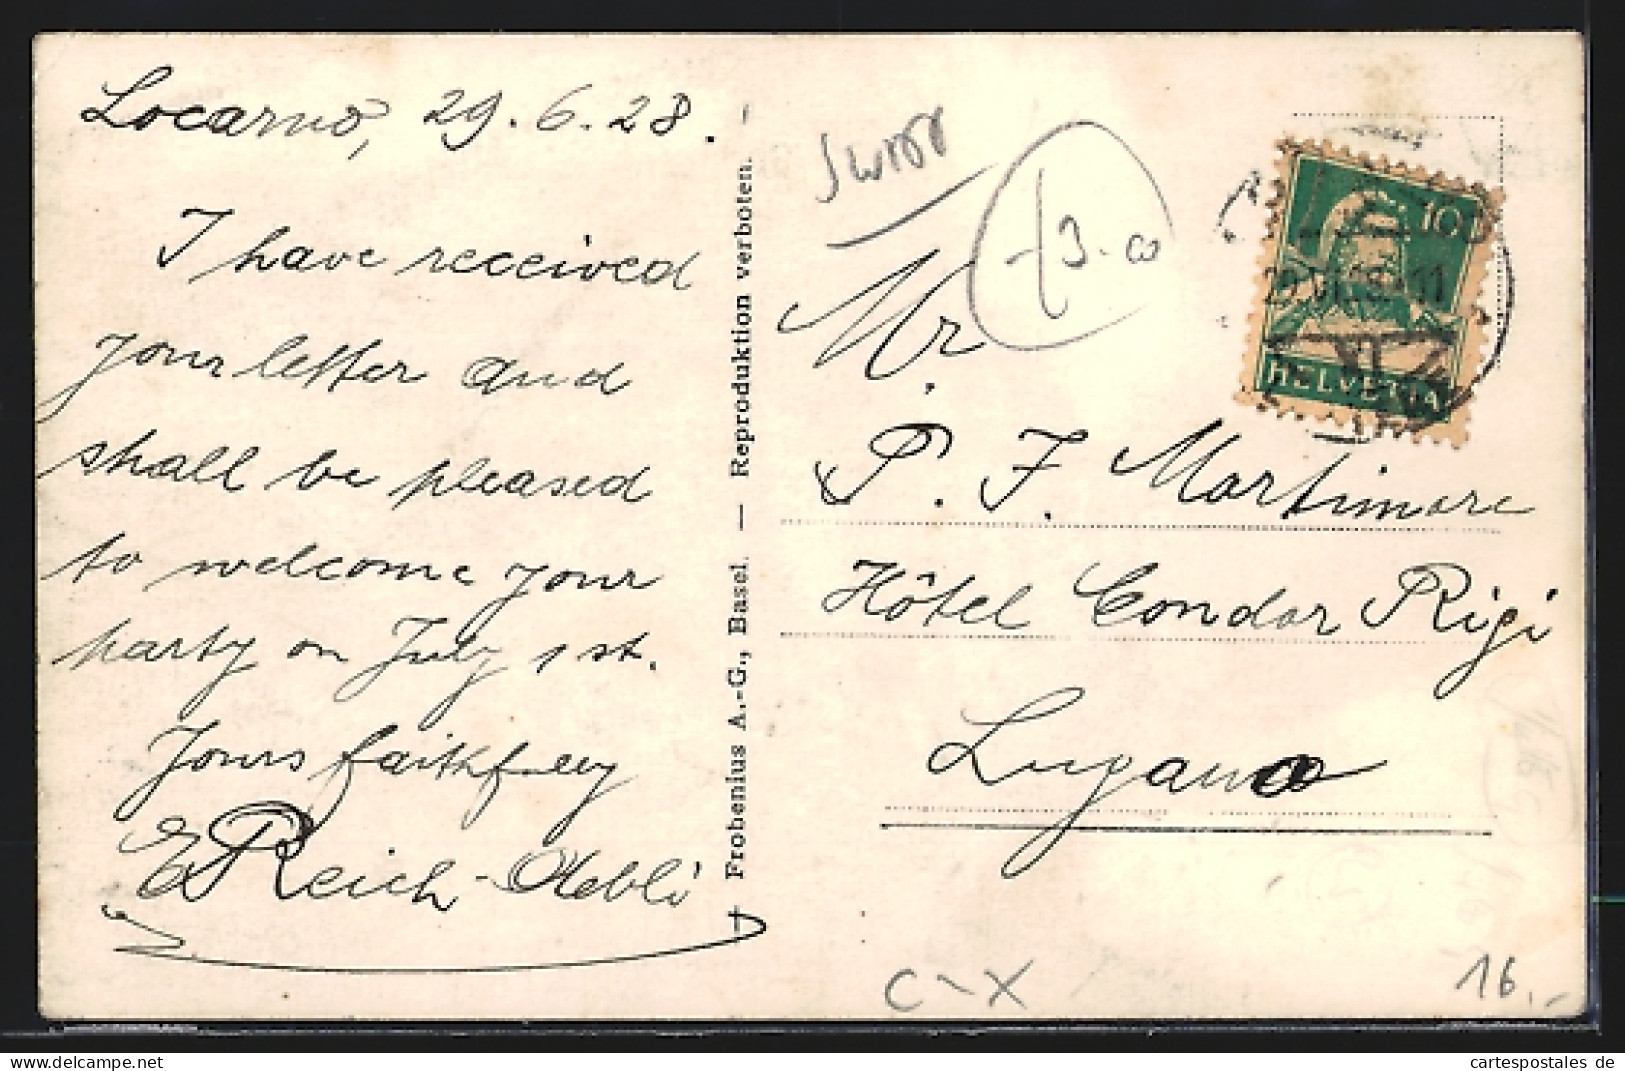 Locarno, 29. 6. 28.
I have received
your letter and
shall be pleased
to welcome your
party on July 1st.
Yours faithfully
E Reich-Aebli
Frobenius A.-G., Basel. — Reproduktion verboten.
10
HELVETIA
Mr.
P. F. Martimore
Hôtel Condor Rigi
Lugano
C-X
16.-
www.delcampe.net
cartespostales de